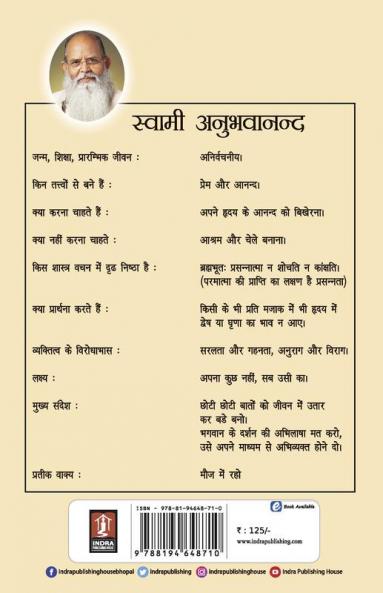 स्वामी अनुभवानन्द
जन्म, शिक्षा, प्रारम्भिक जीवन : अनिर्वचनीय।
किन तत्त्वों से बने हैं : प्रेम और आनन्द।
क्या करना चाहते हैं : अपने हृदय के आनन्द को बिखेरना।
क्या नहीं करना चाहते : आश्रम और चेले बनाना।
किस शास्त्र वचन में दृढ निष्ठा है : ब्रह्मभूतः प्रसन्नात्मा न शोचति न कांक्षति।
(परमात्मा की प्राप्ति का लक्षण है प्रसन्नता)
क्या प्रार्थना करते हैं : किसी के भी प्रति मजाक में भी हृदय में
द्वेष या घृणा का भाव न आए।
व्यक्तित्व के विरोधाभास : सरलता और गहनता, अनुराग और विराग।
लक्ष्य : अपना कुछ नहीं, सब उसी का।
मुख्य संदेश : छोटी छोटी बातों को जीवन में उतार
कर बडे बनो।
भगवान के दर्शन की अभिलाषा मत करो,
उसे अपने माध्यम से अभिव्यक्त होने दो।
प्रतीक वाक्य : मौज में रहो
ISBN - 978-81-94648-71-0
e Book Available
INDRA
PUBLISHING HOUSE
₹ : 125/-
www.indrapublishing.com
9 788194 648710
indrapublishinghousebhopal indrapublishing indrapublishinghouse Indra Publishing House